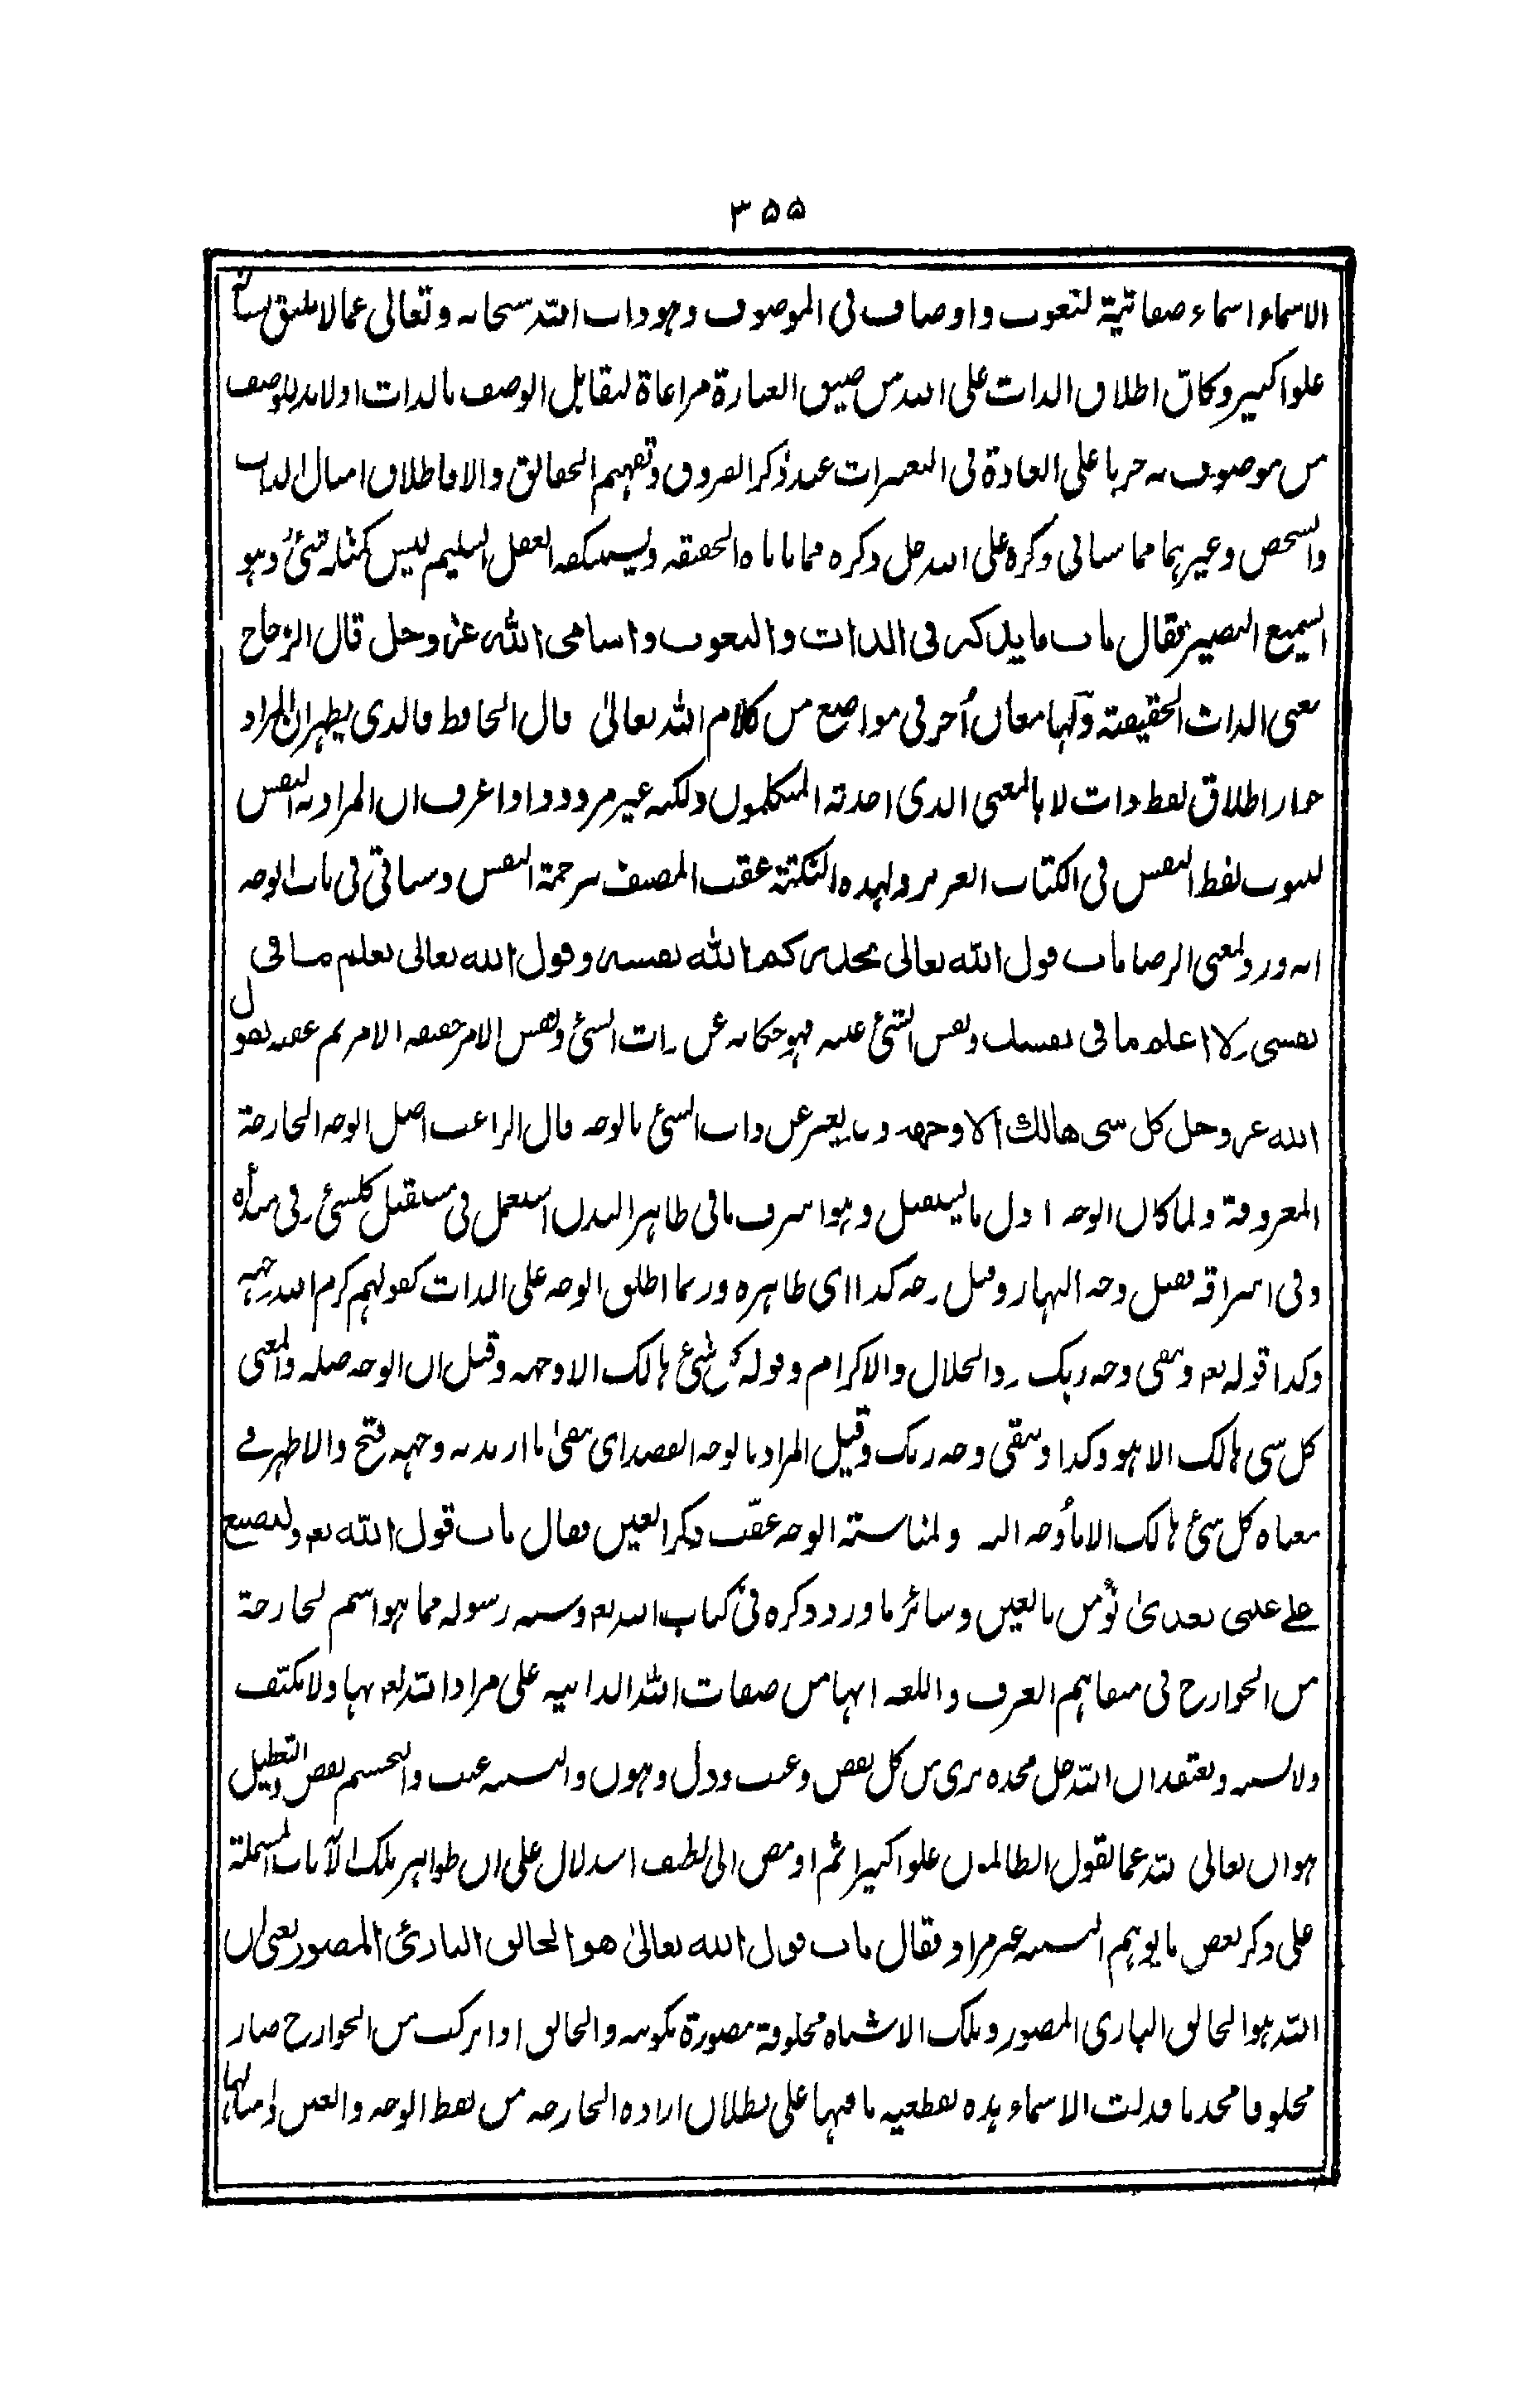 ۳۵۵
الاسماء اسماء صفاتية لنعوت واوصاف فى الموصوف وهو ذات الله سبحانه وتعالى عما لا يليق بشأنه
علوا كبيرا وكان اطلاق الذات على الله من ضيق العبارة مراعاة لتقابل الوصف بالذات اذ لا بد للوصف
من موصوف به جريا على العادة فى التعبيرات عند ذكر الفروق وتفهيم الحقائق والا فاطلاق امثال الذات
والشخص وغيرهما مما سياتى ذكره على الله جل ذكره مما ياباه الحقيقة ويستنكفه العقل السليم ليس كمثله شئ وهو
السميع البصير فقال باب ما يذكر فى الذات والنعوت واسامى الله عز وجل قال الزجاج
معنى الذات الحقيقة ولها معان أخر فى مواضع من كلام الله تعالى قال الحافظ فالذى يظهر ان المراد
جواز اطلاق لفظ ذات لا بالمعنى الذى احدثه المتكلمون ولكنه غير مردود اذا عرف ان المراد به النفس
لثبوت لفظ النفس فى الكتاب العزيز ولهذه النكتة عقب المصنف بترجمة النفس وسياتى فى باب الوجه
انه ورد بمعنى الرضا باب قول الله تعالى يحذركم الله نفسه وقول الله تعالى تعلم ما فى
نفسى ولا اعلم ما فى نفسك ونفس الشئ عينه فهو حكاية عن ذات الشئ ونفس الامر حقيقة الامر ثم عقبه بقول
الله عز وجل كل شى هالك الا وجهه وربما يعبر عن ذات الشئ بالوجه قال الراغب اصل الوجه الجارحة
المعروفة ولما كان الوجه اول ما يستقبل وهو اشرف ما فى ظاهر البدن استعمل فى مستقبل كل شئ وفى مبدأه
وفى اشراقه فقيل وجه النهار وقيل وجه كذا اى ظاهره وربما اطلق الوجه على الذات كقولهم كرم الله وجهه
وكذا قوله تعم ويبقى وجه ربك ذو الجلال والاكرام وقوله كل شئ هالك الا وجهه وقيل ان الوجه صلة والمعنى
كل شى هالك الا هو وكذا ويبقى وجه ربك وقيل المراد بالوجه القصد اى يبقى ما اريد به وجهه فتح والاظهر فے
معناه كل شئ هالك الا ما أوجه اليه ولمناسبته الوجه عقّب ذكر العين فقال باب قول الله تعم ولتصنع
علے عينى تغذىٰ نؤمن بالعين وسائر ما ورد ذكره فى كتاب الله تعم وسنة رسوله مما هو اسم لجارحة
من الجوارح فى مفاهيم العرف واللغة انها من صفات الله الذاتية على مراد الله تعم بها ولا نكيف
ولا نشبه ونعتقد ان الله جل مجده برى من كل نقص وعيب وذل وهون والتشبيه عيب والتجسم نقص والتعطيل
هوان تعالى الله عما يقول الظالمون علوا كبيرا ثم اومض الى لطيف استدلال على ان ظواهر تلك الآيات المشتملة
على ذكر بعض ما يوهم التشبيه غير مراد فقال باب قول الله تعالىٰ هو الخالق البارئ المصور يعنى ان
الله هو الخالق البارى المصور وتلك الاشياء مخلوقة مصورة بكونه والخالق اذا تركب من الجوارح صار
مخلوقا محدثا فدلت الاسماء هذه بقطعية ما فيها على بطلان ارادة الجارحة من لفظ الوجه والعين وامثالها